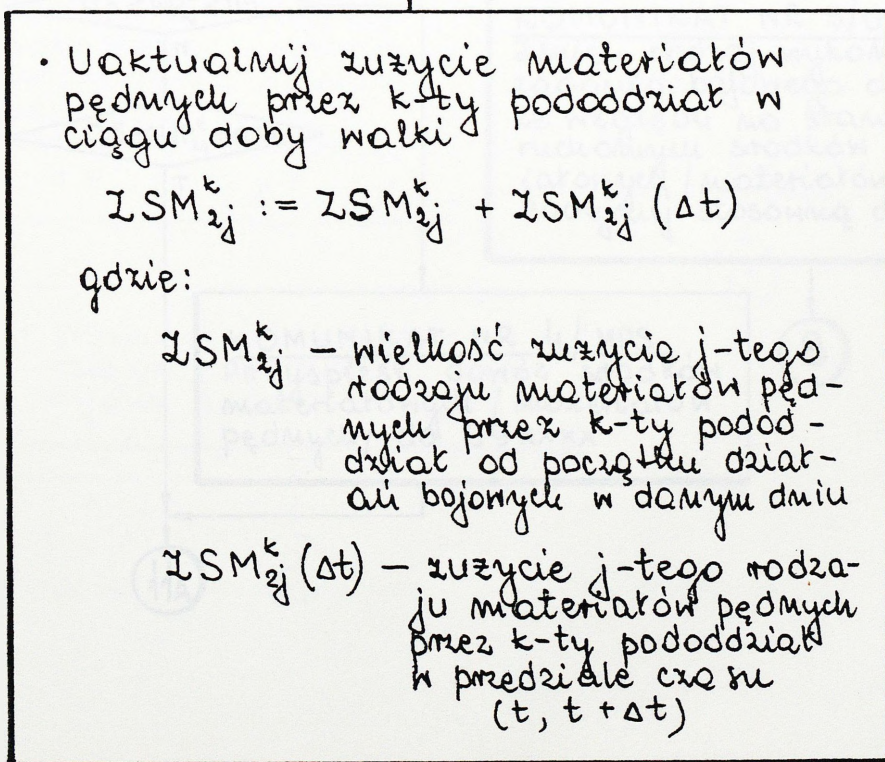 · Uaktualnij zużycie materiałów
pędnych przez k-ty pododdział w
ciągu doby walki
ZSM₂ⱼᵏ := ZSM₂ⱼᵏ + ZSM₂ⱼᵏ (Δt)
gdzie:
ZSM₂ⱼᵏ – wielkość zużycia j-tego
rodzaju materiałów pęd-
nych przez k-ty podod-
dział od początku dział-
ań bojowych w danym dniu
ZSM₂ⱼᵏ (Δt) – zużycie j-tego rodza-
ju materiałów pędnych
przez k-ty pododdział
w przedziale czasu
(t, t + Δt)